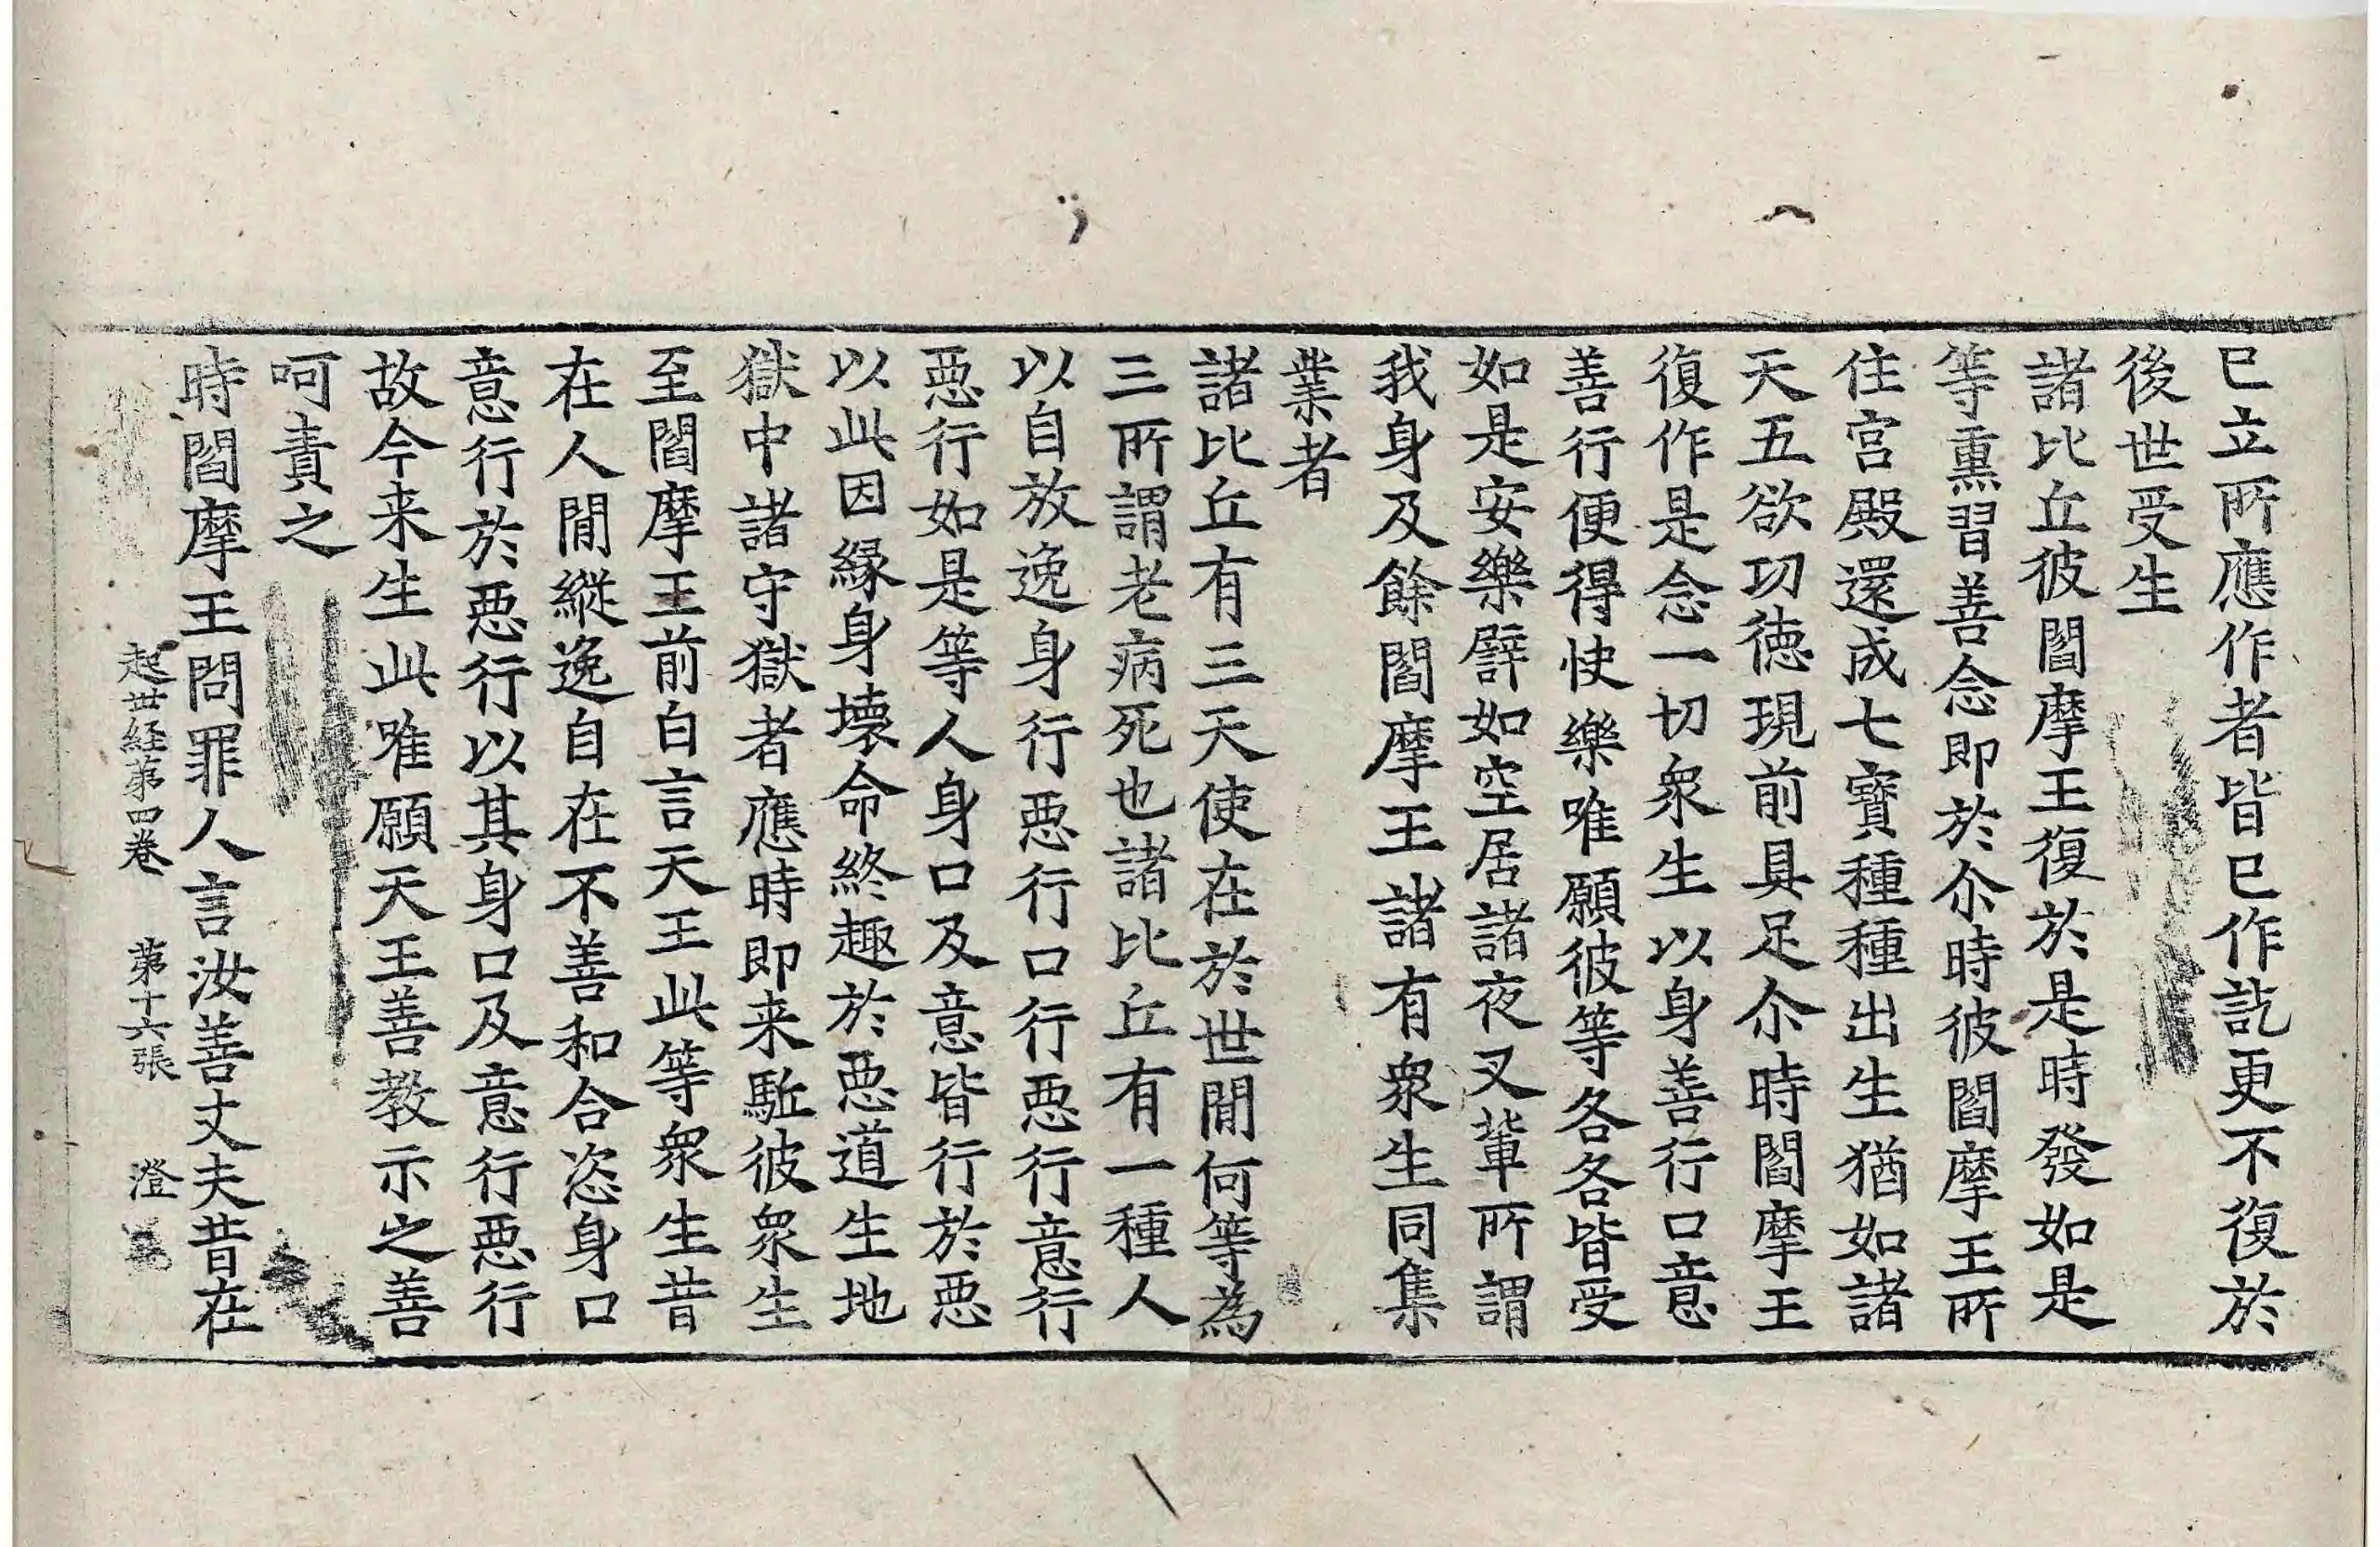 已立所應作者皆已作訖更不復於
後世受生
諸比丘彼閻摩王復於是時發如是
等熏習善念即於尒時彼閻摩王所
住宮殿還成七寶種種出生猶如諸
天五欲功徳現前具足尒時閻摩王
復作是念一切衆生以身善行口意
善行便得快樂唯願彼等各各皆受
如是安樂譬如空居諸夜叉輩所謂
我身及餘閻摩王諸有衆生同集
業者
諸比丘有三天使在於世間何等為
三所謂老病死也諸比丘有一種人
以自放逸身行悪行口行悪行意行
悪行如是等人身口及意皆行於悪
以此因縁身壊命終趣於悪道生地
獄中諸守獄者應時即来駈彼衆生
至閻摩王前白言天王此等衆生昔
在人間縱逸自在不善和合恣身口
意行於悪行以其身口及意行悪行
故今来生此唯願天王善教示之善
呵責之
時閻摩王問罪人言汝善丈夫昔在
起世経第四巻 第十六張 澄